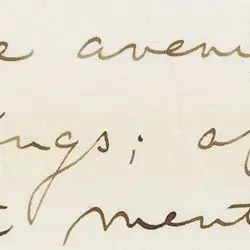 e aven
ings; of
t ment